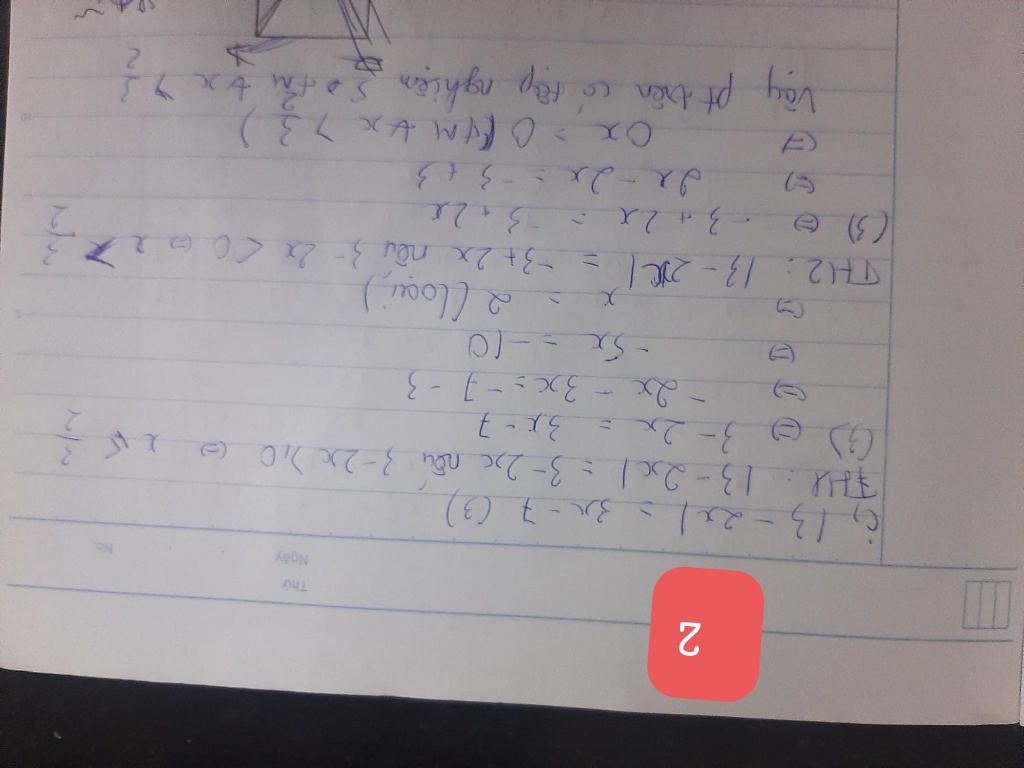 2
Thứ
Ngày No
c, |3 - 2x| = 3x - 7 (3)
TH1: |3 - 2x| = 3 - 2x nếu 3 - 2x ≥ 0 ⇔ x ≤ 3/2
(3) ⇔ 3 - 2x = 3x - 7
⇔ - 2x - 3x = -7 - 3
⇔ - 5x = -10
⇔ x = 2 (loại)
TH2: |3 - 2x| = -3 + 2x nếu 3 - 2x < 0 ⇔ x > 3/2
(3) ⇔ -3 + 2x = -3 + 2x
⇔ 2x - 2x = -3 + 3
⇔ 0x = 0 (tM ∀x > 3/2)
Vậy pt trên có tập nghiệm S tM ∀x > 3/2